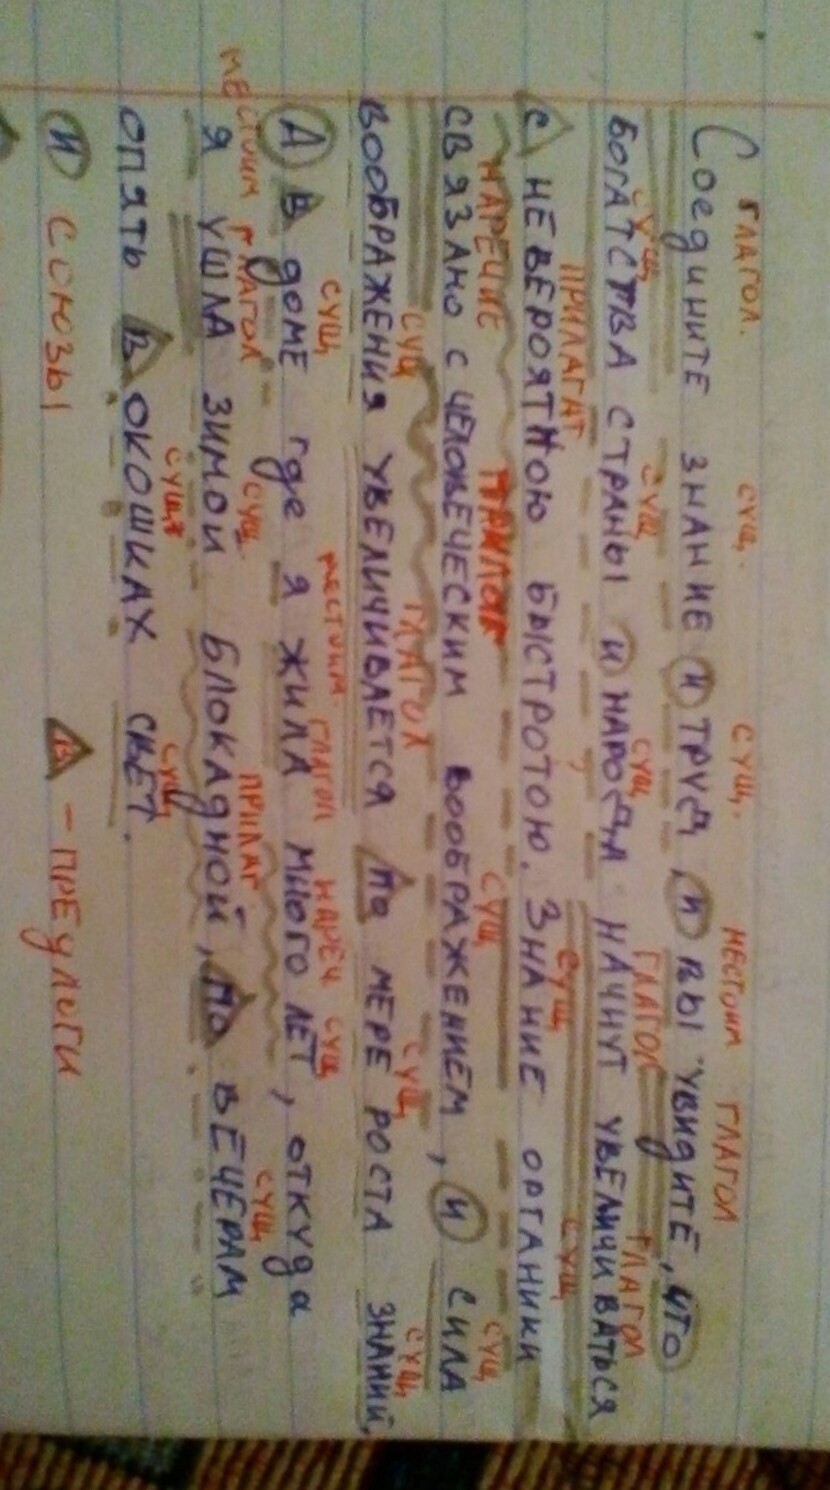 ГЛАГОЛ. СУЩ. СУЩ. МЕСТОИМ ГЛАГОЛ
Соедините знание и труд, и вы увидите, что
СУЩ СУЩ СУЩ ГЛАГОЛ ГЛАГОЛ
богатства страны и народа начнут увеличиваться
ПРИЛАГАТ СУЩ СУЩ
с невероятною быстротою. Знание органики
НАРЕЧИЕ ПРИЛАГ СУЩ СУЩ
связано с человеческим воображением, и сила
СУЩ ГЛАГОЛ СУЩ СУЩ
воображения увеличивается по мере роста знаний.
СУЩ МЕСТОИМ. ГЛАГОЛ НАРЕЧ СУЩ
А в доме где я жила много лет, откуда
МЕСТОИМ ГЛАГОЛ СУЩ ПРИЛАГ СУЩ
я ушла зимой блокадной, по вечерам
СУЩ СУЩ
опять в окошках свет.
И СОЮЗЫ В - ПРЕДЛОГИ